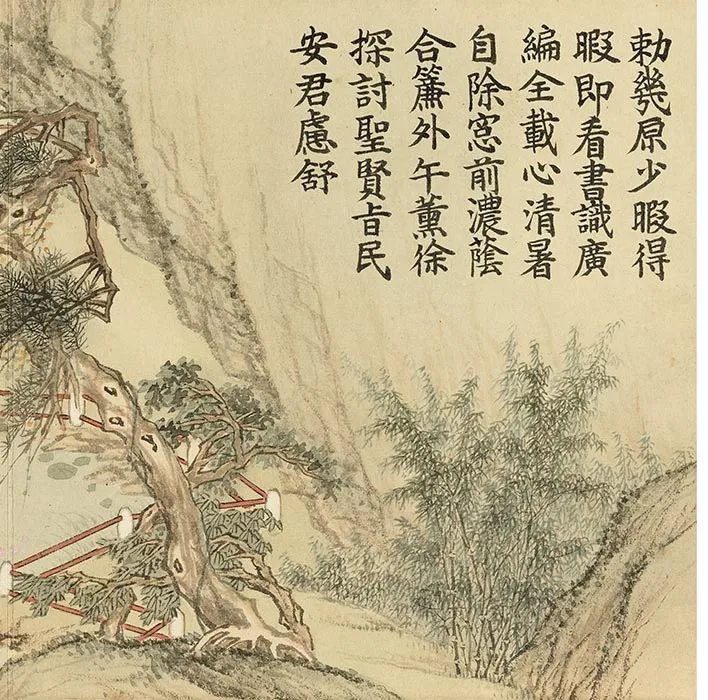 勅幾原少暇得
暇即看書識廣
編全載心清暑
自除窓前濃蔭
合簾外午薰徐
探討聖賢旨民
安君慮舒